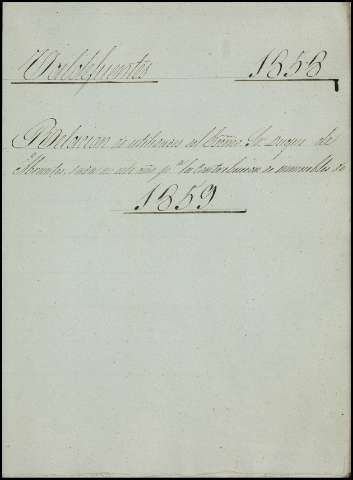 Valdefuentes 1858
Relacion de utilidades del Exmo. Sr. Duque de
Abrantes, en este año pa. la Contribucion de inmuebles de
1859